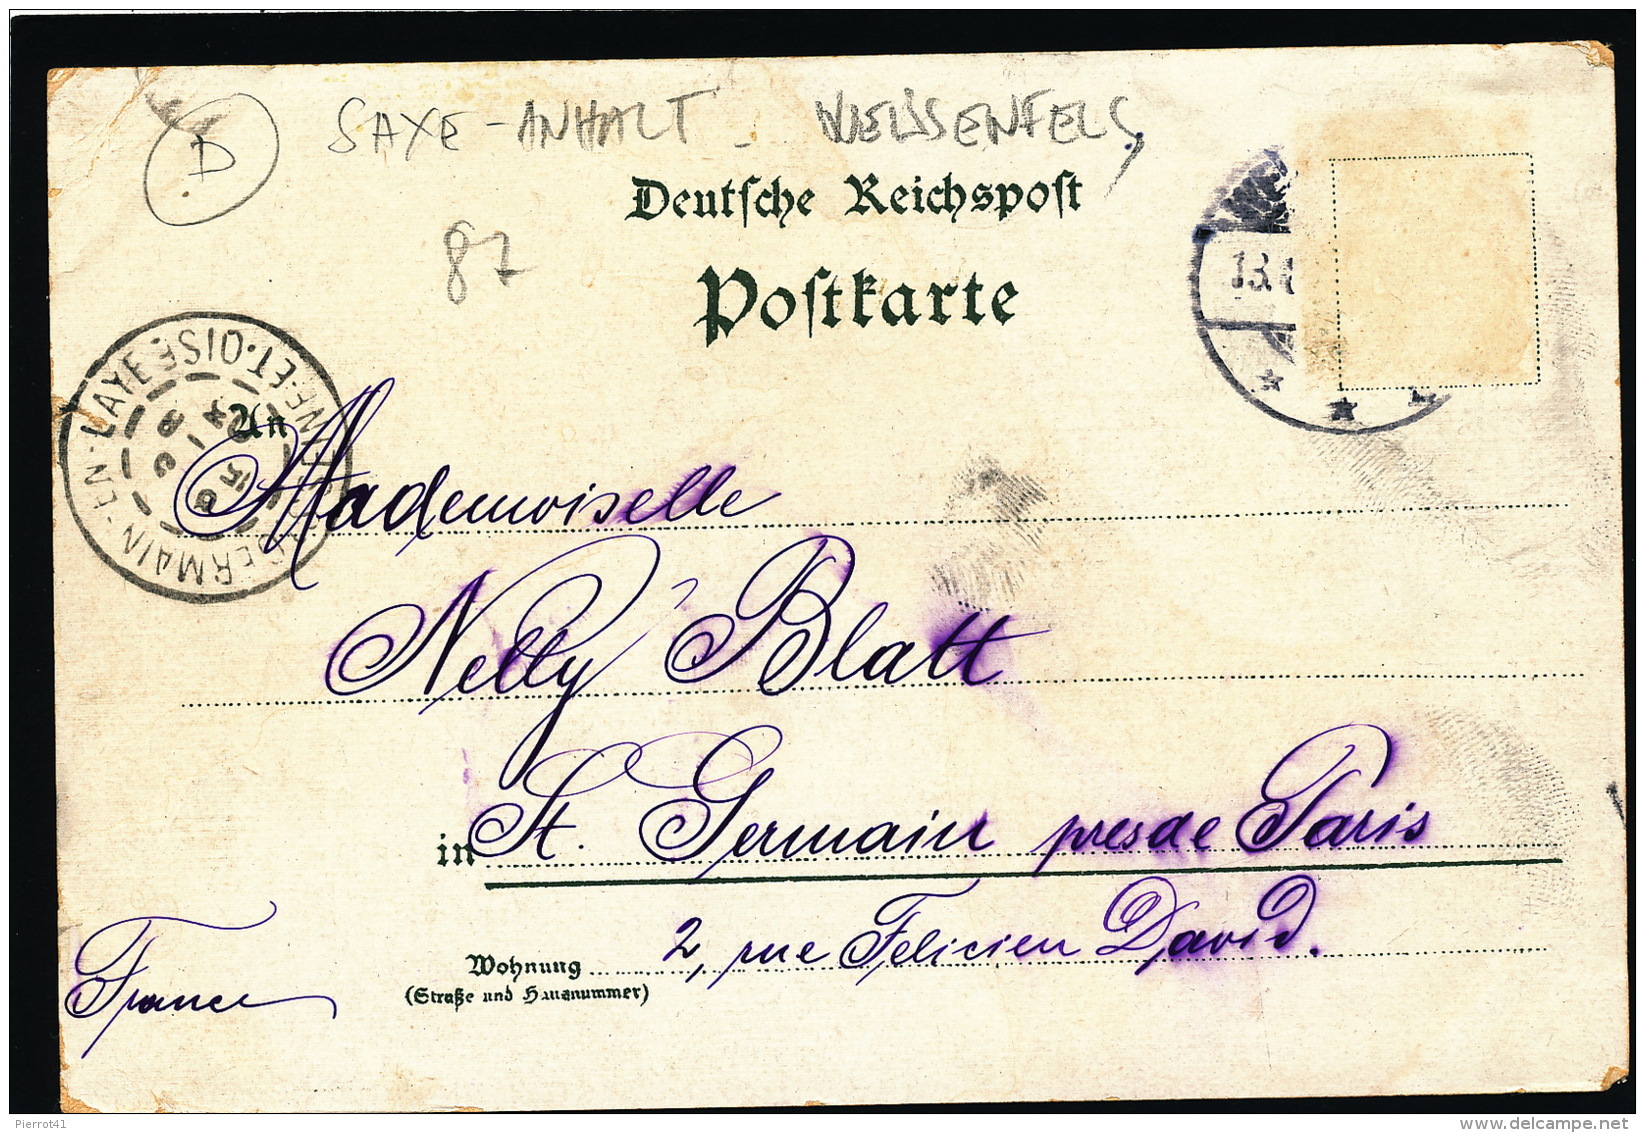 D
SAXE-ANHALT - WEISSENFELS
Deutsche Reichspost
87
Postkarte
13.
GERMAIN-EN-LAYE
ET-OISE
An
Mademoiselle
Nelly Blatt
in St. Germain pres de Paris
Wohnung 2, rue Felicien David.
(Straße und Hausnummer)
France
Pierrot41
www.delcampe.net